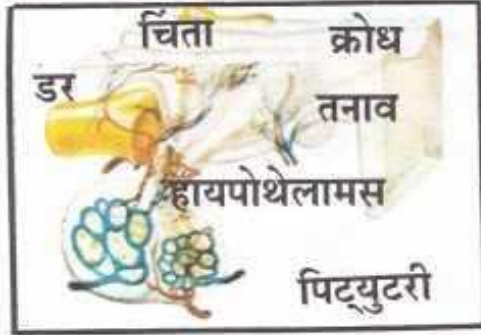 चिंता क्रोध
डर
तनाव
हायपोथेलामस
पिट्युटरी